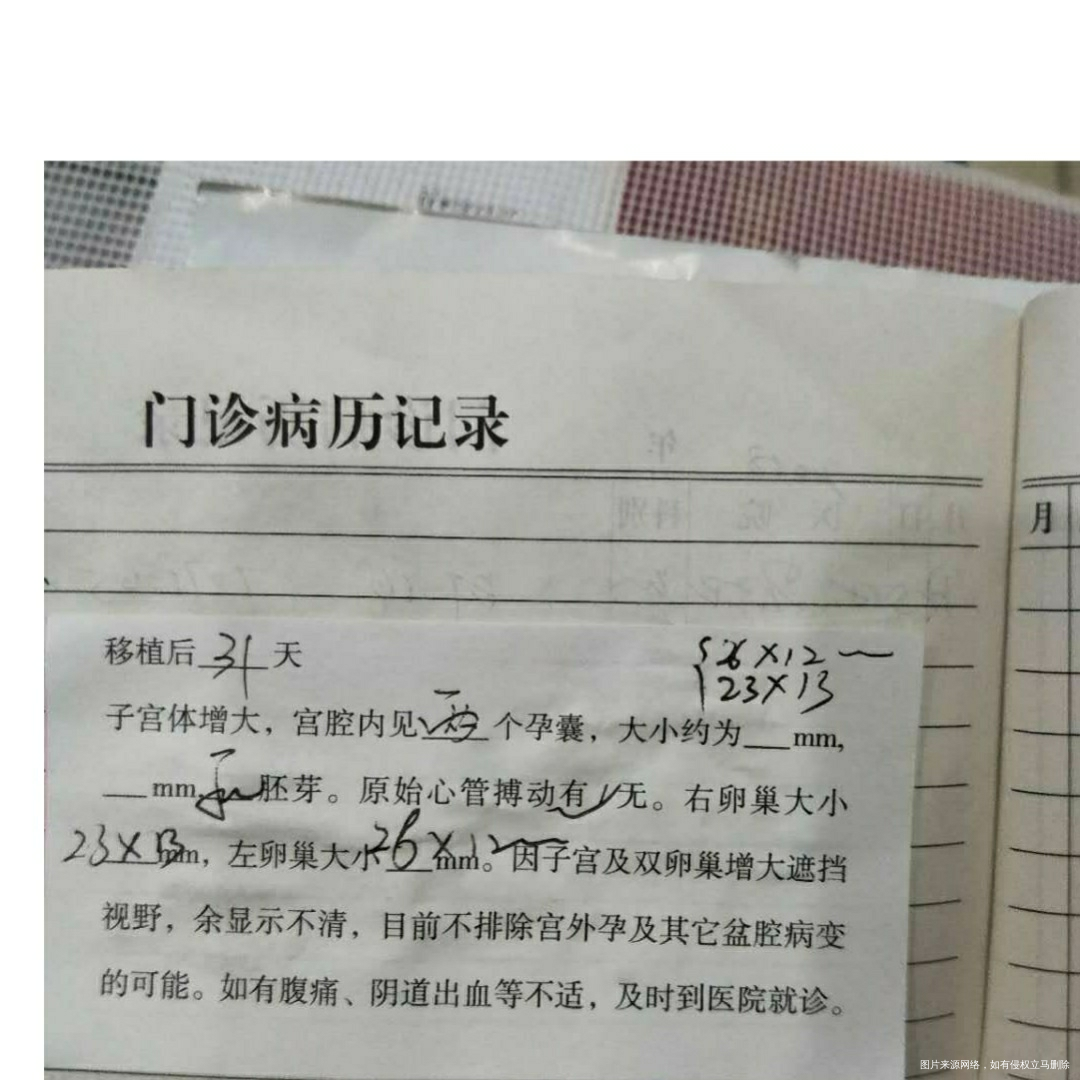 门诊病历记录
月
移植后31天
26×12
23×13
子宫体增大，宫腔内见两个孕囊，大小约为__mm，
__mm 胚芽。原始心管搏动有/无。右卵巢大小
23×13mm，左卵巢大小26×12mm。因子宫及双卵巢增大遮挡
视野，余显示不清，目前不排除宫外孕及其它盆腔病变
的可能。如有腹痛、阴道出血等不适，及时到医院就诊。
图片来源网络，如有侵权立马删除